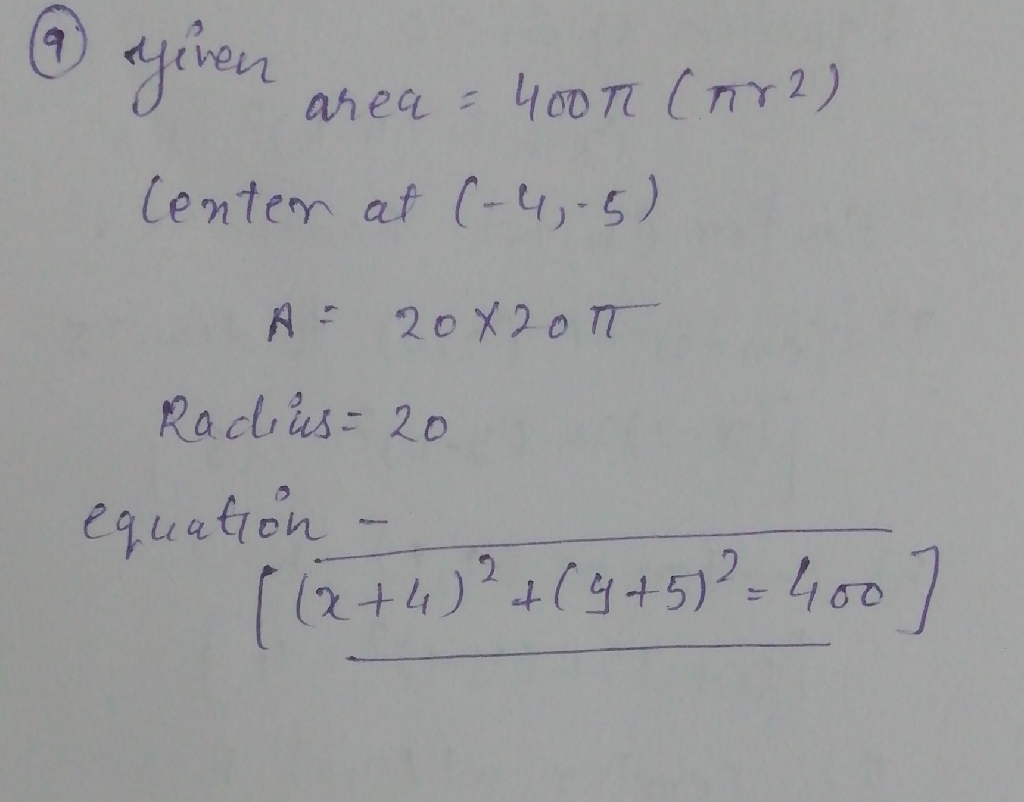 9 Given
area = 400π (πr2)
Center at (-4,-5)
A = 20×20π
Radius = 20
equation -
[(x+4)²+(y+5)²=400]